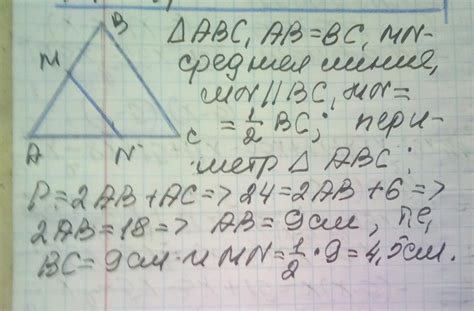 B
ΔABC, AB=BC, MN-
M
средняя линия,
MN//BC, MN=
=1/2 BC; пери-
A N C
метр Δ ABC:
P=2AB+AC=> 24=2AB+6=>
2AB=18=> AB=9см, те,
BC=9см и MN=1/2·9=4,5см.